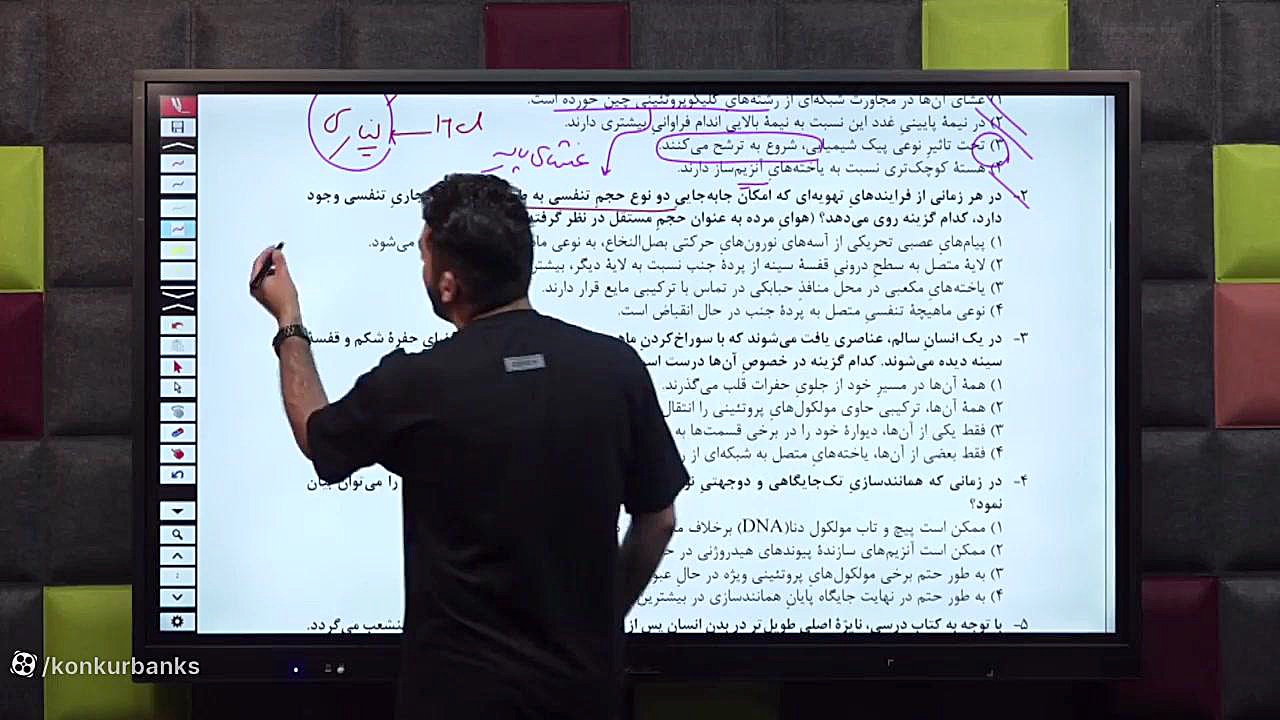 ۱) غشای آن‌ها در مجاورت شبکه‌ای از رشته‌های گلیکوپروتئینی چین خورده است.
۲) در نیمهٔ پایینیِ غدد این نسبت به نیمهٔ بالایی اندام فراوانیِ بیشتری دارند.
۳) تحت تاثیرِ نوعی پیک شیمیایی، شروع به ترشح می‌کنند.
۴) هستهٔ کوچک‌تری نسبت به یاخته‌هایِ آنزیم‌ساز دارند.
غشای پایه
۲- در هر زمانی از فرایندهایِ تهویه‌ای که امکان جابه‌جاییِ دو نوع حجم تنفسی به جاریِ تنفسی وجود
دارد، کدام گزینه روی می‌دهد؟ (هوایِ مرده به عنوان حجمِ مستقل در نظر گرفته
۱) پیام‌هایِ عصبیِ تحریکی از آسه‌های نورون‌هایِ حرکتیِ بصل‌النخاع، به نوعی می‌شود.
۲) لایهٔ متصل به سطح درونیِ قفسهٔ سینه از پردهٔ جنب نسبت به لایهٔ دیگر، بیشتر
۳) یاخته‌هایِ مکعبی در محل منافذِ حبابکی در تماس با ترکیبی مایع قرار دارند.
۴) نوعی ماهیچهٔ تنفسیِ متصل به پردهٔ جنب در حال انقباض است.
۳- در یک انسانِ سالم، عناصری یافت می‌شوند که با سوراخ‌کردنِ حفرهٔ شکم و قفسهٔ
سینه دیده می‌شوند. کدام گزینه در خصوصِ آن‌ها درست
۱) همهٔ آن‌ها در مسیرِ خود از جلویِ حفرات قلب می‌گذرند.
۲) همهٔ آن‌ها، ترکیبی حاوی مولکول‌هایِ پروتئینی را انتقال
۳) فقط یکی از آن‌ها، دیوارهٔ خود را در برخی قسمت‌ها به
۴) فقط بعضی از آن‌ها، یاخته‌هایِ متصل به شبکه‌ای از
۴- در زمانی که همانندسازیِ تک‌جایگاهی و دوجهتیِ را می‌توان بیان
نمود؟
۱) ممکن است پیچ و تاب مولکول دنا(DNA) برخلاف
۲) ممکن است آنزیم‌های سازندهٔ پیوندهای هیدروژنی در
۳) به طور حتم برخی مولکول‌هایِ پروتئینی ویژه در حالِ
۴) به طور حتم در نهایت جایگاه پایانِ همانندسازی در
۵- با توجه به کتاب درسی، نایژهٔ اصلیِ طویل‌تر در بدن انسان پس از منشعب می‌گردد.
/konkurbanks